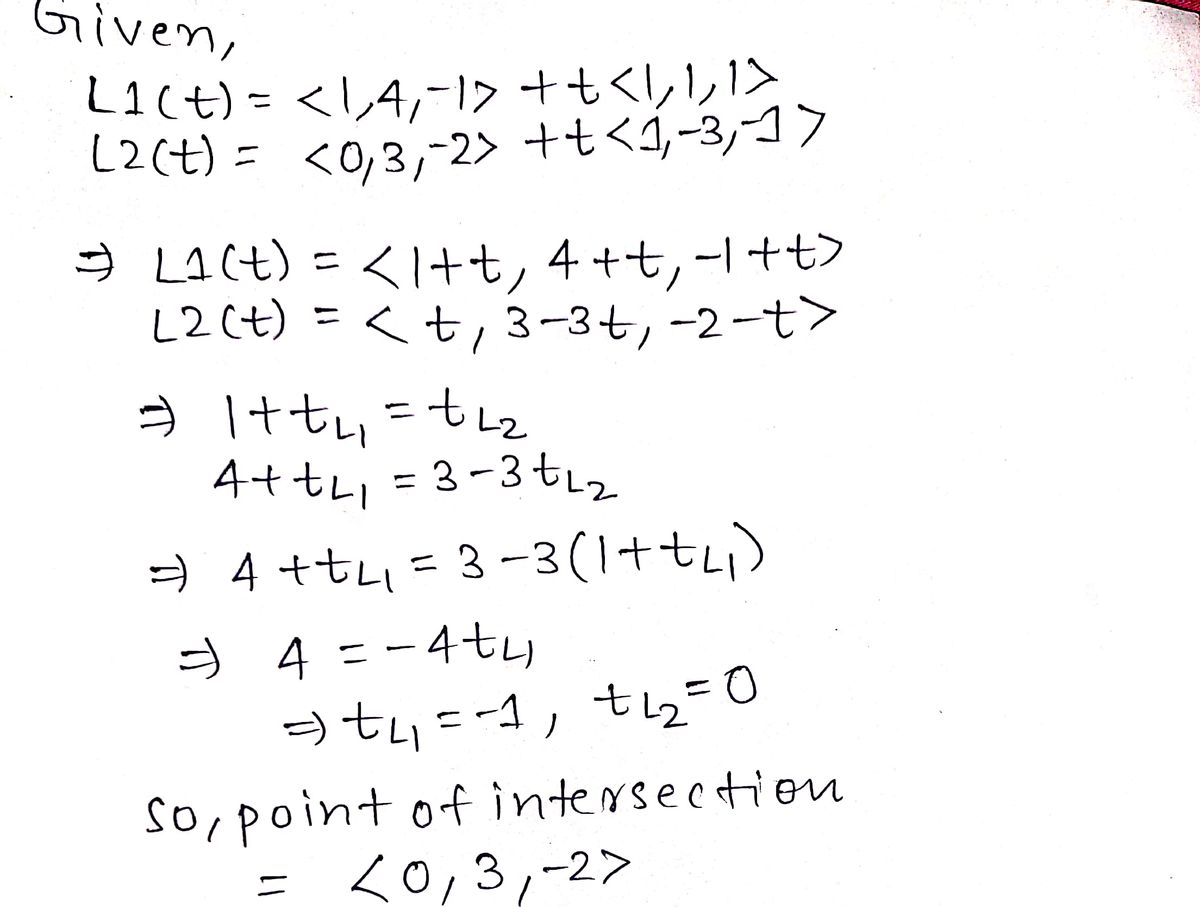 Given,
L1(t) = <1,4,-1> + t<1,1,1>
L2(t) = <0,3,-2> + t<1,-3,-1>
⇒ L1(t) = <1+t, 4+t, -1+t>
L2(t) = < t, 3-3t, -2-t>
⇒ 1+t_{L1} = t_{L2}
4+t_{L1} = 3-3t_{L2}
⇒ 4+t_{L1} = 3-3(1+t_{L1})
⇒ 4 = -4t_{L1}
⇒ t_{L1} = -1, t_{L2} = 0
so, point of intersection
= <0,3,-2>